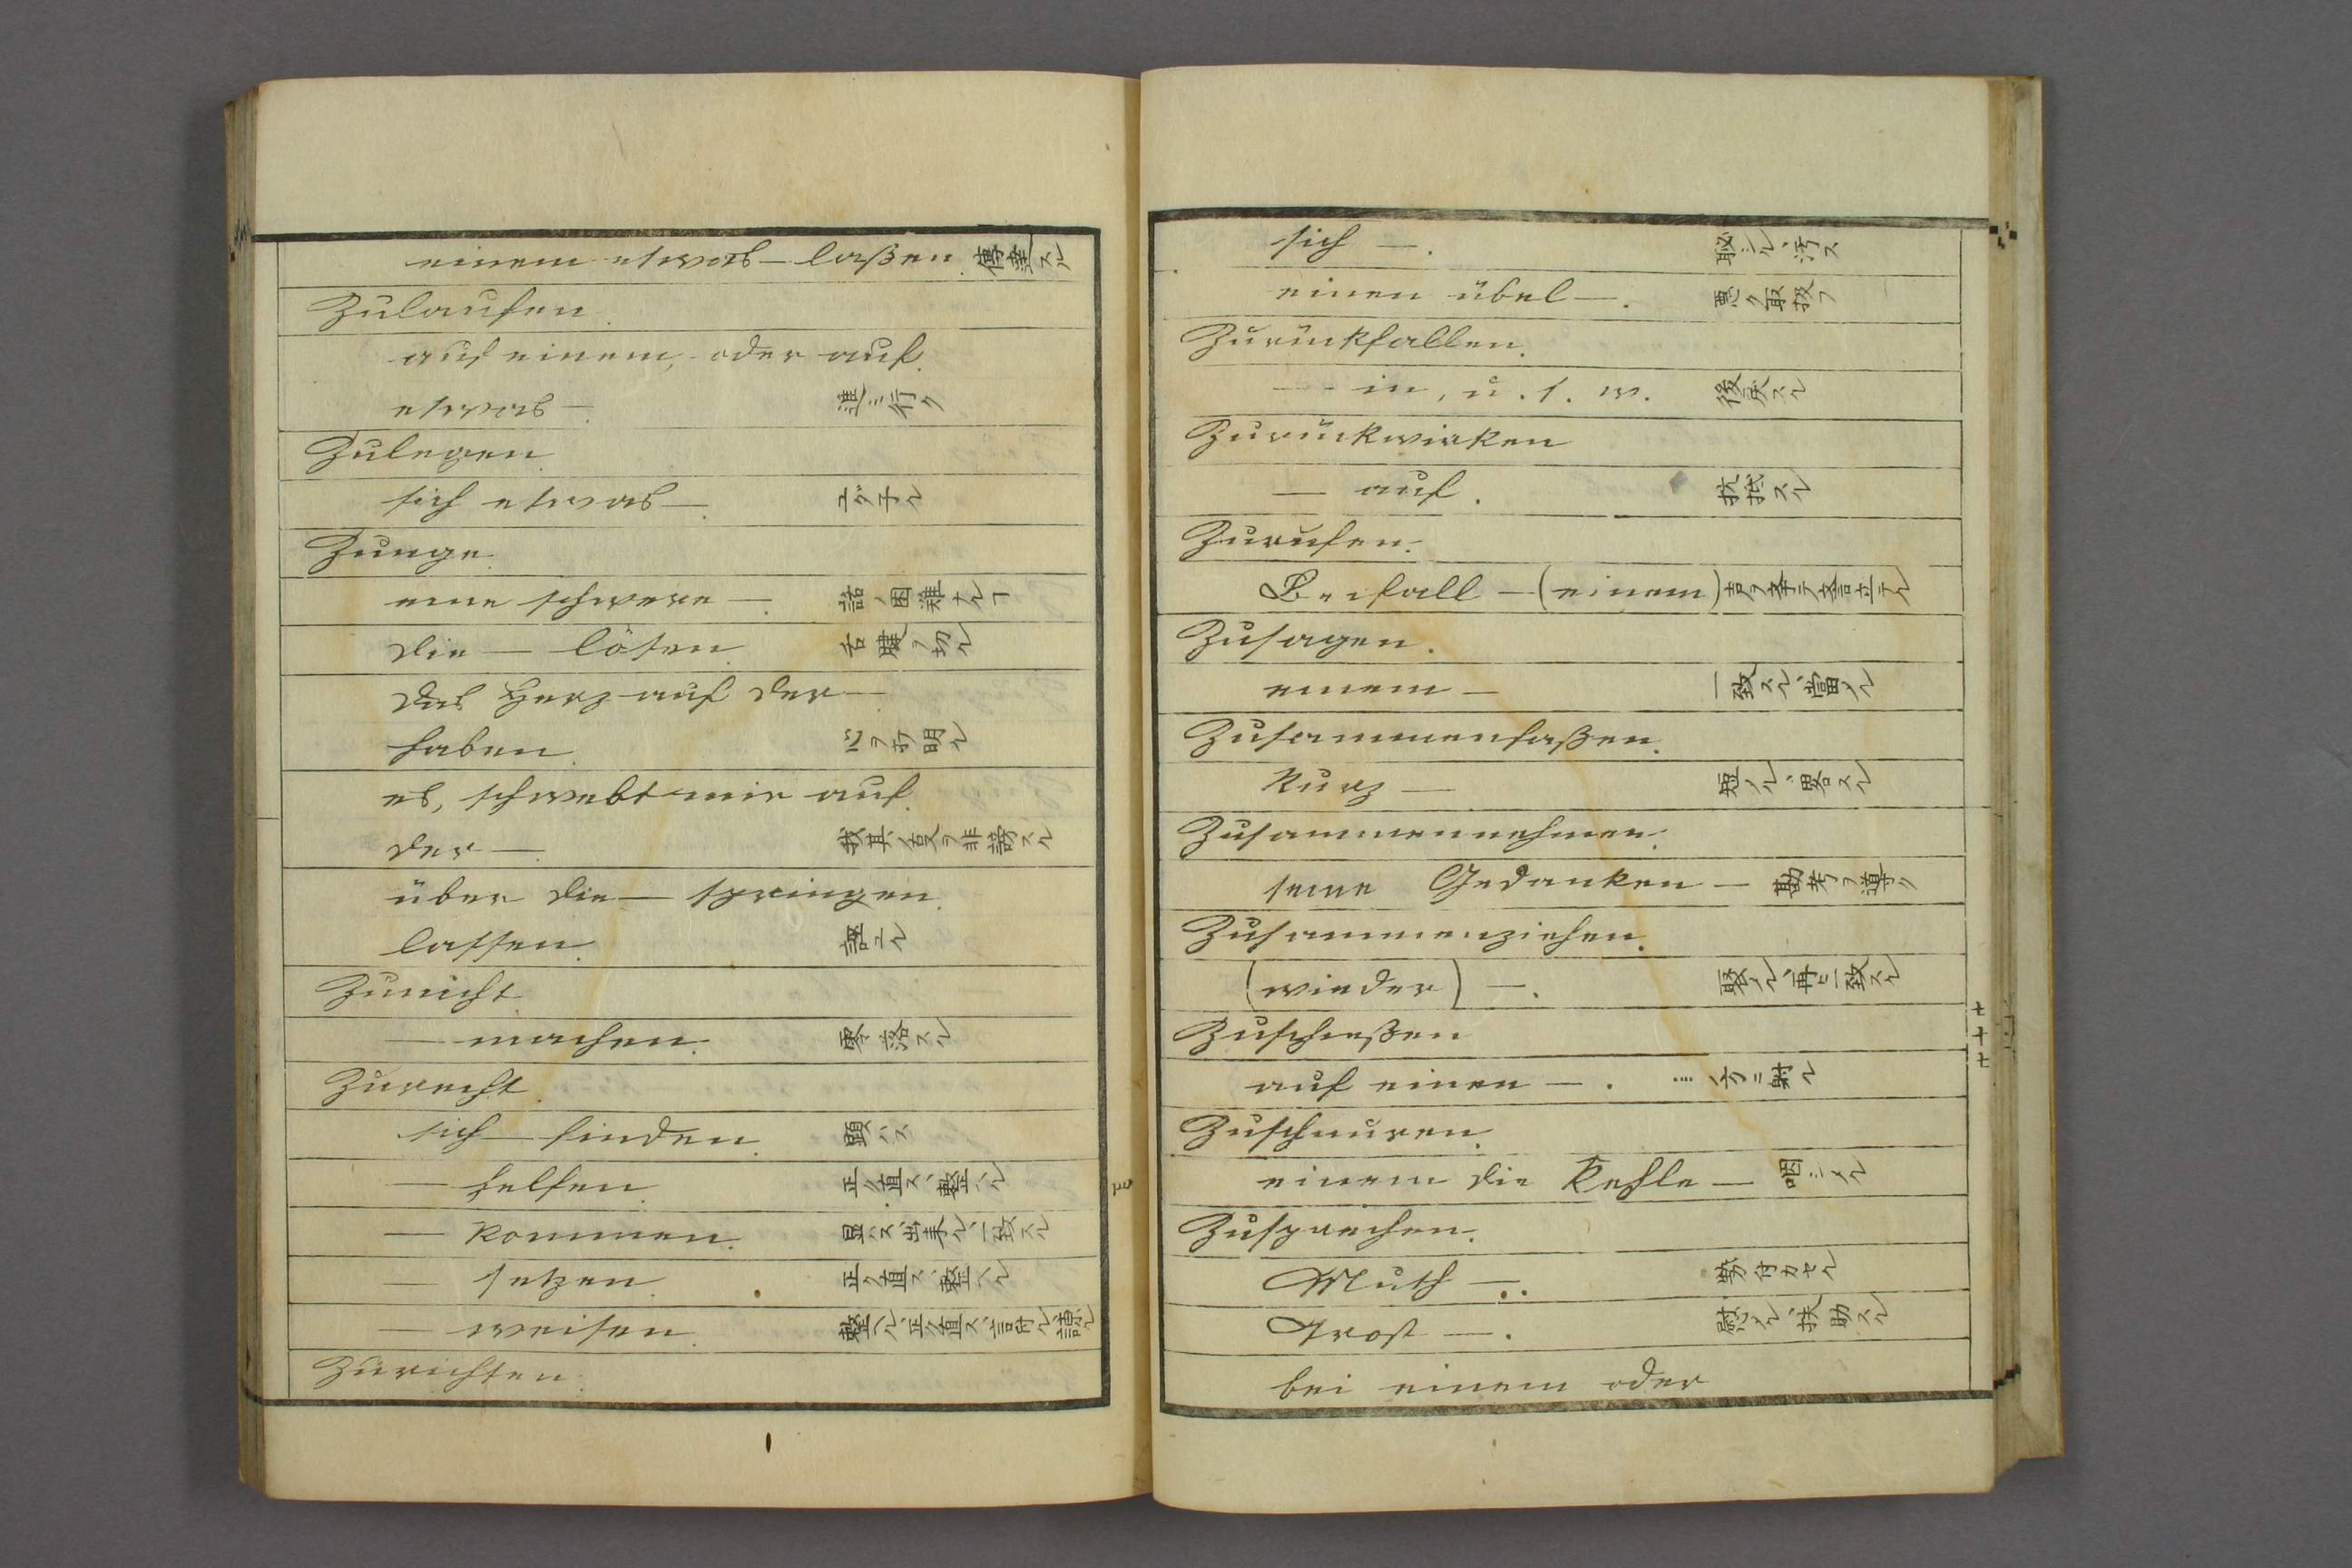 einem etwas — laßen. 傳達スル
Zulaufen.
auf einem, oder auf
etwas —. 進ミ行ク
Zulegen.
sich etwas —.
Zunge.
eine schwere —. 話ノ困難ナルヿ
die — lösen. 舌腱ヲ切ル
das Herz auf der —
haben. 心ヲ打明ル
es, schwebt mir auf
der —. 我其ヲ非謗スル
über die — springen
lassen.
Zunicht
— machen. 零落スル
Zurecht.
sich — finden. 顕ハス
— helfen. 正ク直ス、整ヘル
— kommen. 显ハス、出来ル、一致スル
— setzen. 正ク直ス、整ヘル
— weisen. 整ヘル、正ク直ス
Zurichten.
sich —. 恥シル、汚ス
einen übel —. 悪ク取扱フ
Zurückfallen.
— in, u. s. w. 後戻スル
Zurückwirken
— auf. 抗抵スル
Zurufen.
Beifall — (einem)
Zusagen.
einem — 一致スル、當ル
Zusammenfaßen.
kurz — 短クル、畧スル
Zusammennehmen.
seine Gedanken — 勘考ヲ導ク
Zusammenziehen.
(wieder) —. 聚ル、再ヒ一致スル
Zuschießen
auf einen —. .... 方ニ射ル
Zuschnuren.
einem die Kehle — 咽シメル
Zusprechen.
Muth —. 勢付カセル
Trost —. 慰メル、扶助スル
bei einem oder
七十七